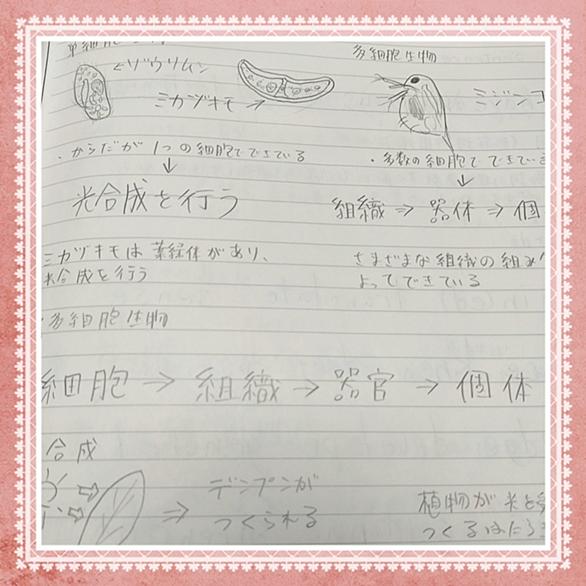 単細胞生物
多細胞生物
←ゾウリムシ
ミカヅキモ→
ミジンコ
・からだが1つの細胞でできている
・多数の細胞でできてい
↓
↓
光合成を行う
組織⇒器体⇒個
ミカヅキモは葉緑体があり、
光合成を行う
さまざまな組織の組み
よってできている
・多細胞生物
細胞⇒組織→器官→個体
合成
⇒デンプンが
つくられる
植物が光を
つくるはたら